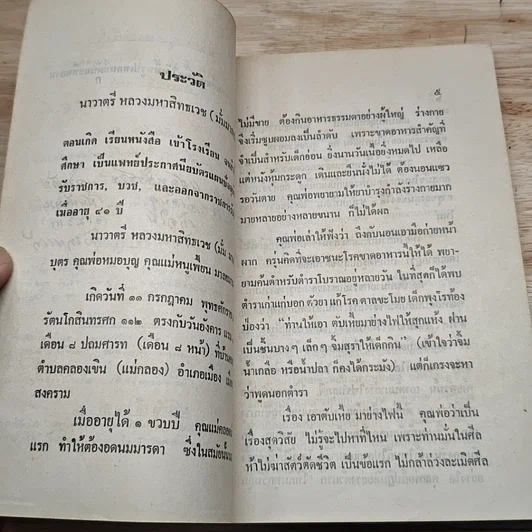 ประวัติ
นาวาตรี หลวงมหาสิทธเวช (มั่น
ตอนเกิด เรียนหนังสือ เข้าโรงเรียน
ศึกษา เป็นแพทย์ประกาศนียบัตรแผน
รับราชการ, บวช, และออกจากราชการ
เมื่ออายุ ๔๑ ปี
นาวาตรี หลวงมหาสิทธเวช (มั่น
บุตร คุณพ่อหมอบุญ คุณแม่หนูเฟี้ยน
เกิดวันที่ ๑๑ กรกฎาคม พุทธศักราช
รัตนโกสินทรศก ๑๑๒ ตรงกับวันอังคาร แรม
เดือน ๘ ปฐมศารท (เดือน ๘ หน้า) ที่บ้าน
ตำบลคลองเขิน (แม่กลอง) อำเภอเมือง
สงคราม
เมื่ออายุได้ ๑ ขวบปี คุณแม่คลอด
แรก ทำให้ต้องอดนมมารดา ซึ่งในสมัยนั้น
๕
ไม่มีขาย ต้องกินอาหารธรรมดาอย่างผู้ใหญ่ ร่างกาย
จึงเริ่มซูบผอมลงเป็นลำดับ เพราะขาดอาหารสำคัญที่
จำเป็นสำหรับเด็กอ่อน ยิ่งนานวันเนื้อยิ่งหมดไป เหลือ
แต่หนังหุ้มกระดูก เดินและยืนนั่งไม่ได้ ต้องนอนแซว
รอวันตาย คุณพ่อพยายามให้ยาบำรุงกำลังร่างกายมา
มายหลายอย่างหลายขนาน ก็ไม่ได้ผล
คุณพ่อเล่าให้ฟังว่า ถึงกับนอนเอามือก่ายหน้า
ผาก ครุ่นคิดที่จะเอาชนะโรคขาดอาหารนี้ให้ได้ พยา-
ยามค้นตำหรับตำราโบราณอยู่หลายวัน ในที่สุดก็ได้พบ
ตำราเก่าแก่บอก ตัวยา แก้โรค ตาลขะโมย เด็กพุงโรท้อง
ป่องว่า "ท่านให้เอา ตับเหี้ยมาย่างไฟให้สุกแห้ง ฝาน
เป็นชิ้นบาง ๆ เล็ก ๆ จิ้มสุราให้เด็กกิน" (เข้าใจว่าจิ้ม
น้ำเกลือ หรือน้ำปลา ก็คงได้กระมัง) แต่ก็เกรงจะหา
ว่าพูดนอกตำรา
เรื่อง เอาตับเหี้ย มาย่างไฟนี้ คุณพ่อว่าเป็น
เรื่องสุดวิสัย ไม่รู้จะไปหาที่ไหน เพราะท่านมั่นในศีล
ห้าไม่ฆ่าสัตว์ตัดชีวิต เป็นข้อแรก ไม่กล้าล่วงละเมิดศีล